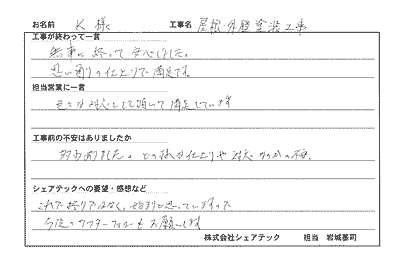 お名前 K 様 工事名 屋根・外壁塗装工事
工事が終わって一言
無事に終って安心しました。
思い通りの仕上りで満足です。
担当営業に一言
色々な対応をして頂いて満足しています
工事前の不安はありましたか
多少ありました。どの様な仕上りや対応なのか不安。
シェアテックへの要望・感想など
これで終りではなく、始まりと思っていますので
今後のアフターフォローもお願いします
株式会社シェアテック 担当 岩城基司